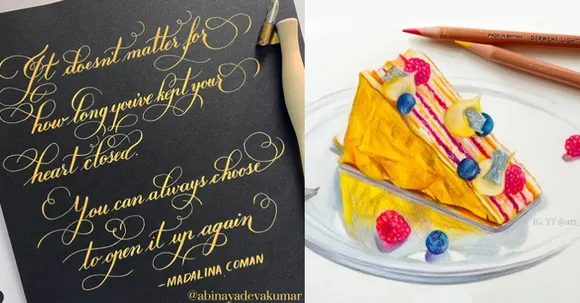 It doesnt matter for
how long you've kept your
heart closed.
You can always choose
to open it up again
-MADALINA COMAN
@abinayadevakumar
DERWENT
IG, YT @art_